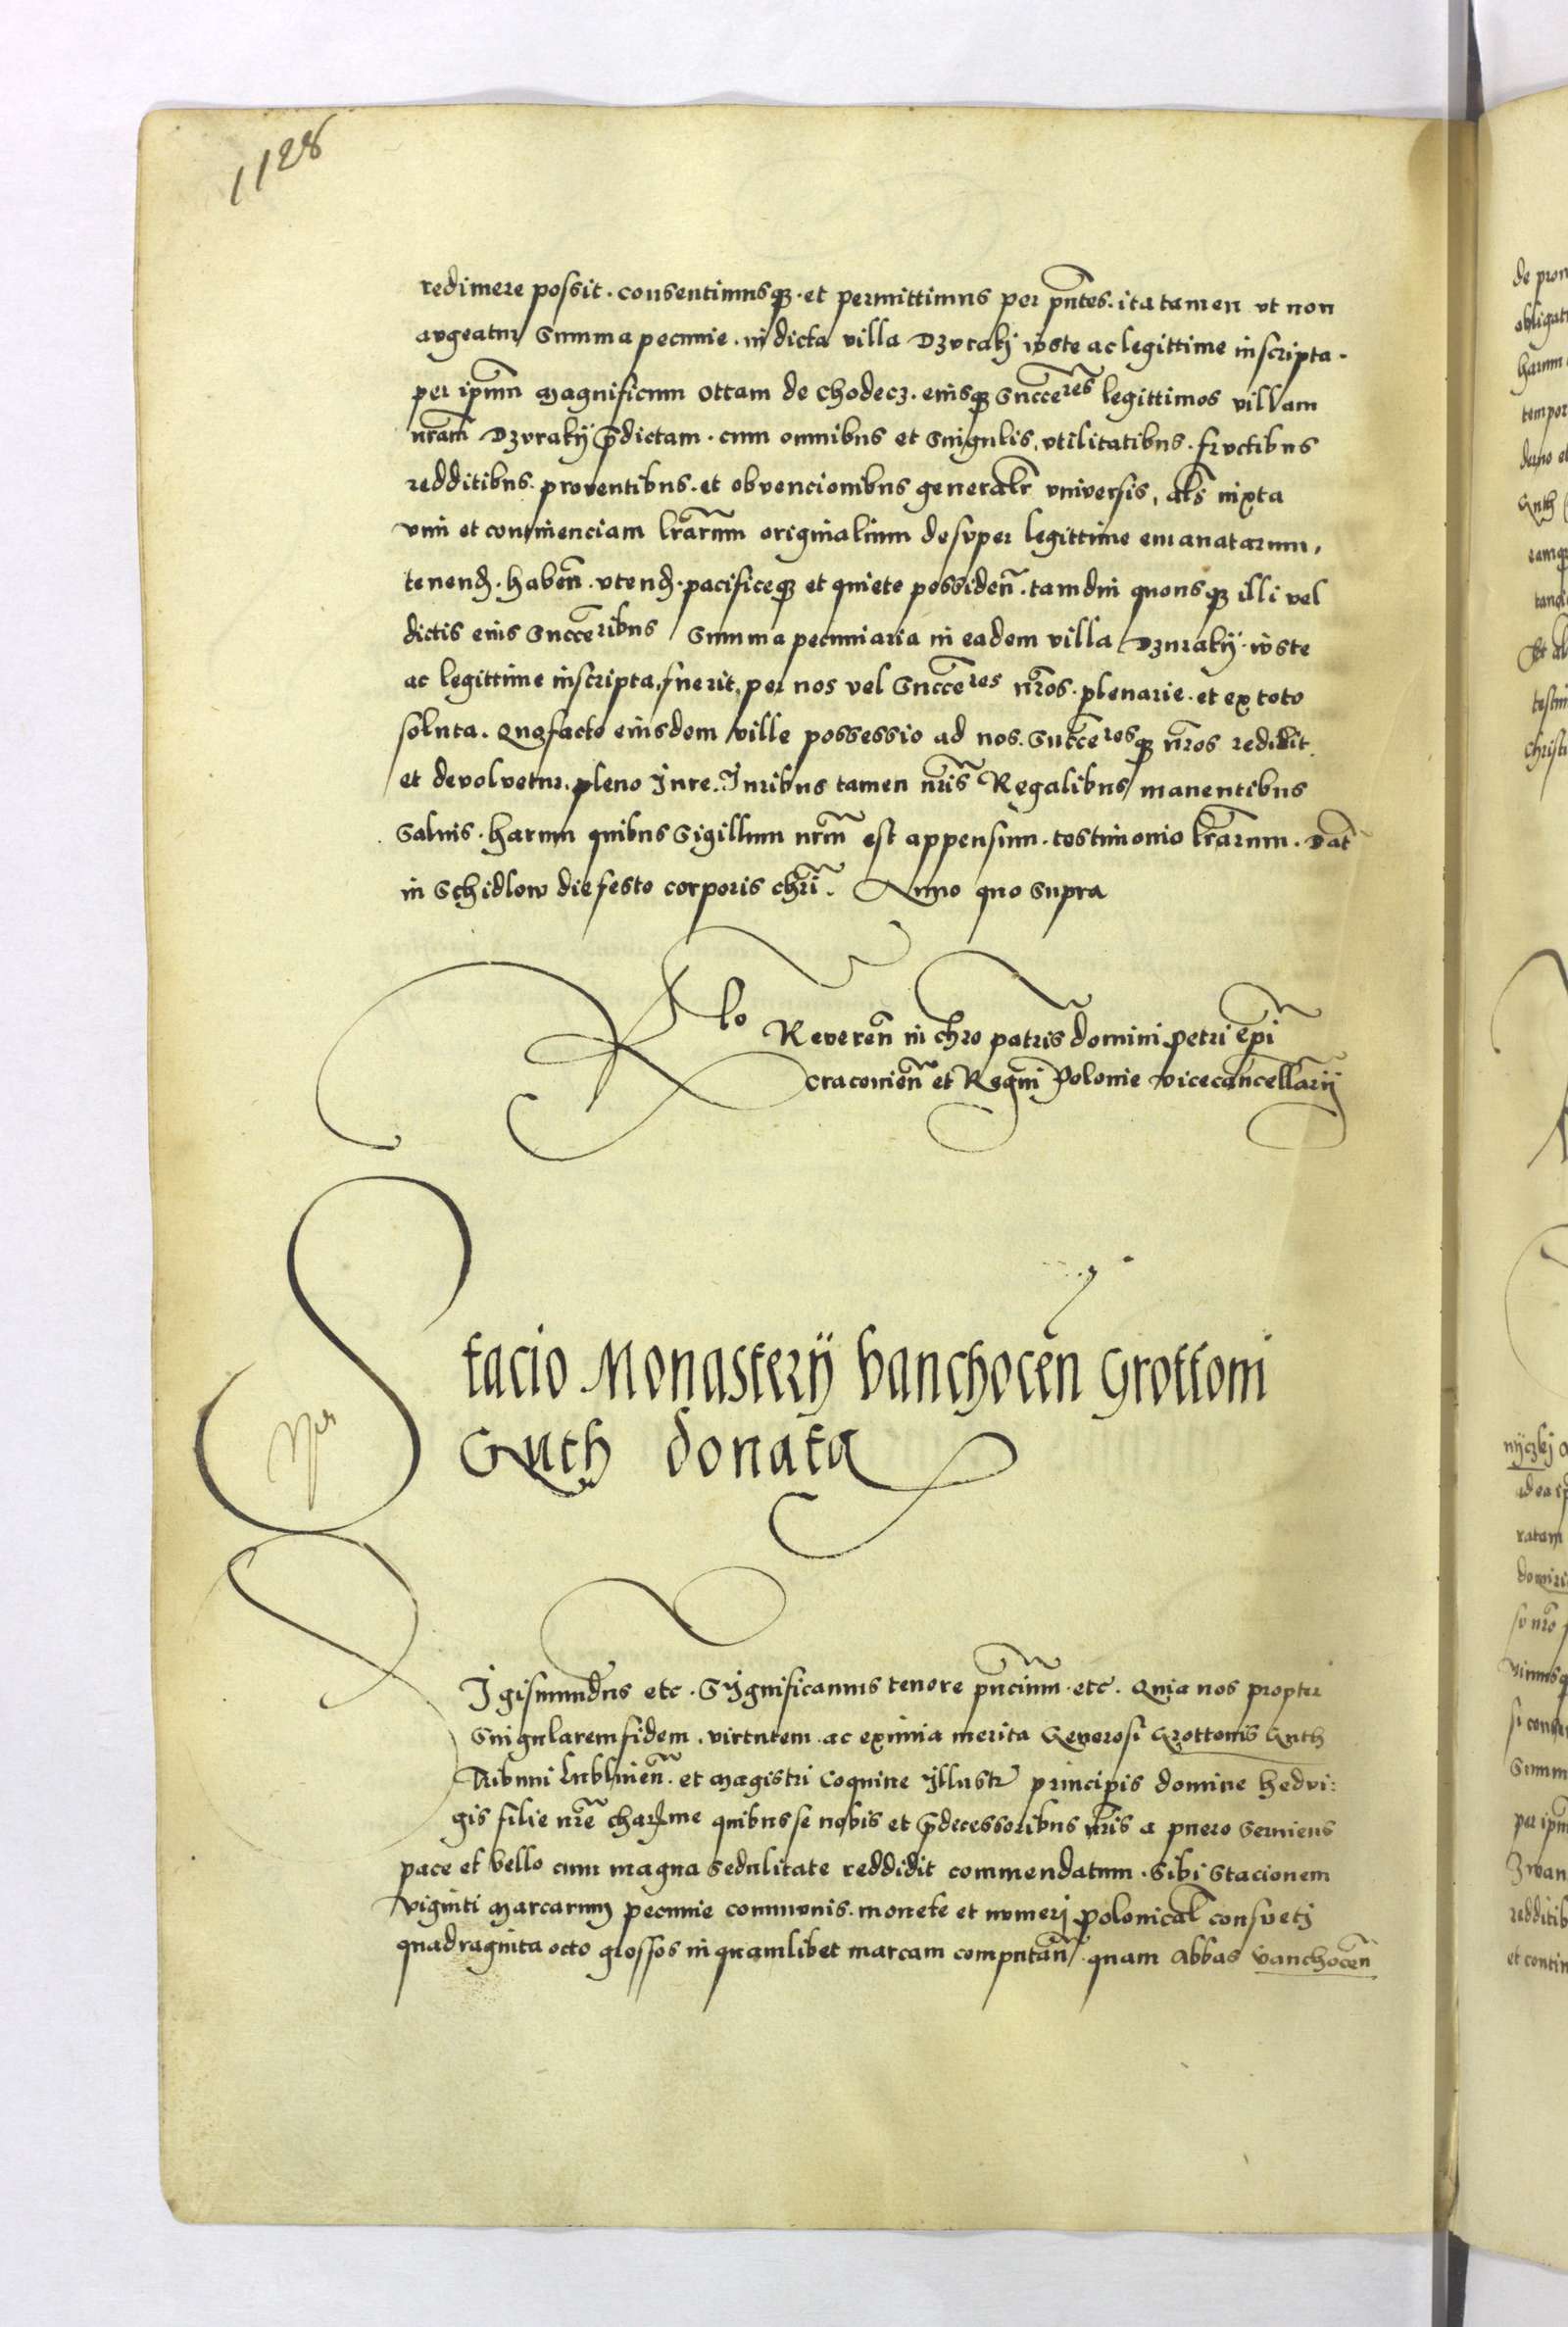 1128
redimere possit. consentimusq3. et permittimus per pntes. ita tamen ut non
augeatur summa pecunie. in dicta villa Dzuraky iuste ac legittime inscripta.
per ipsum magnificum Ottam de Chodecz. eiusq3 succeres legittimos villam
nram Dzuraky pdictam. cum omnibus et singulis, utilitatibus. fructibus
redditibus. proventibus. et obvencionibus generalr universis, als iuxta
vim et continenciam lrarum originalium desuper legittime emanatarum,
tenend. haben. utend. pacificeq3 et quiete possiden. tamdiu quousq3 illi vel
dictis eius succeribus summa pecuniaria in eadem villa Dzuraky. iuste
ac legittime inscripta, fuerit, per nos vel succeres nros. plenarie. et ex toto
soluta. Quo facto eiusdem ville possessio ad nos. succeresq3 nros redibit
et devolvetur. pleno Jure. Juribus tamen nris Regalibus manentibus
salvis. harum quibus sigillum nrm est appensum. testimonio lrarum. Dat
in Schidlow die festo corporis chri. Anno quo supra
Rlo Reveren in chro patris domini petri epi
cracovien et Regni Polonie vicecancellarii
Stacio Monasterij vanchocen Grottoni
Guth donata
Sigismundus etc. Significamus tenore pncium. etc. Quia nos propter
singularem fidem. virtutem. ac eximia merita Generosi Grottonis Guth
Tribuni Lublinen. et magistri coquine Illustr principis domine hedvi:
gis filie nre charme quibus se nobis et pdecessoribus nris a puero serviens
pace et bello cum magna sedulitate reddidit commendatum. sibi stacionem
viginti marcarum pecunie communis. monete et numeri polonical consueti
quadraginta octo grossos in quamlibet marcam computan. quam Abbas vanchocen